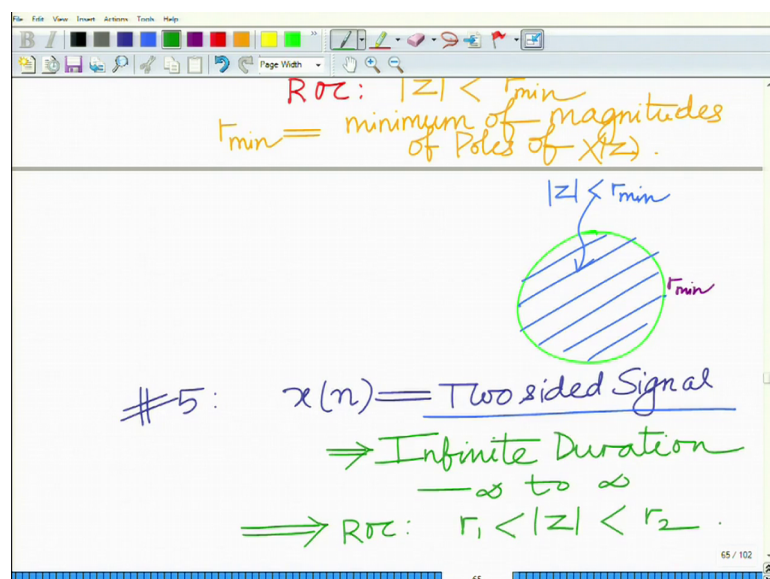 File Edit View Insert Actions Tools Help
B I
Page Width
ROC: |z| < rmin
rmin = minimum of magnitudes
of Poles of X(z).
|z| < rmin
rmin
#5: x(n) = Two sided Signal
⇒ Infinite Duration
-∞ to ∞
⇒ ROC: r1 < |z| < r2.
65 / 102
65